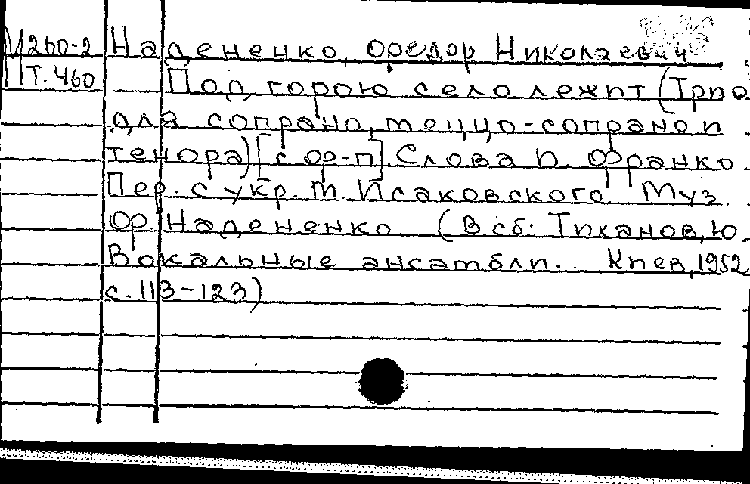 М260-2 Надененко, Федор Николаевич
ПТ.460 Под горою село лежит (Трио
для сопрано, меццо-сопрано и
тенора) [с ф-п]. Слова И. Франко.
Пер. с укр. М. Исаковского Муз.
Ф. Надененко (В сб: Тиханов, Ю.
Вокальные ансамбли. Киев, 1952
с. 113-123)